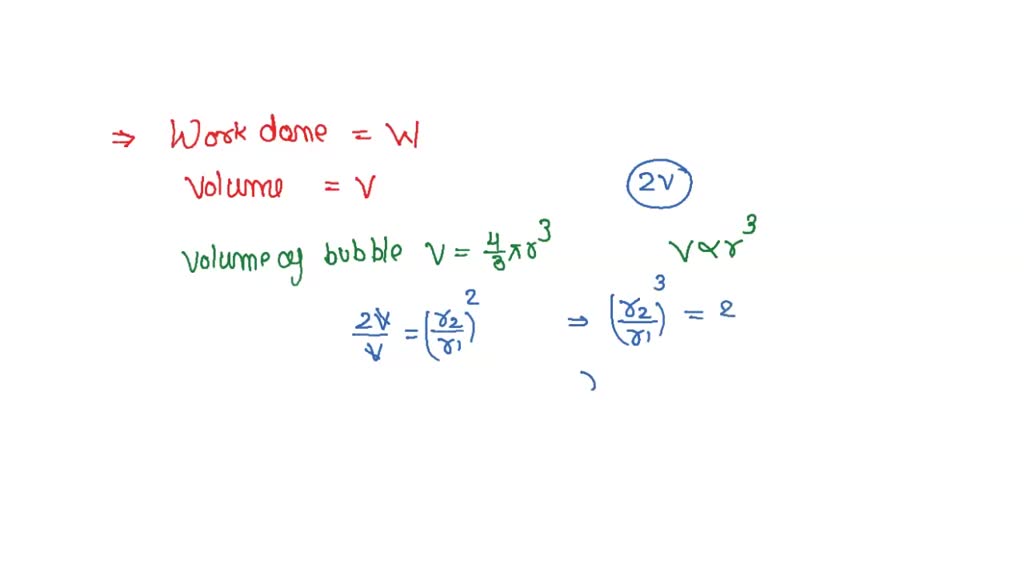 ⇒ Work done = W
Volume = V
2V
Volume of bubble V = 4/3 πr^3
V ∝ r^3
2V/V = (r2/r1)^2 ⇒ (r2/r1)^3 = 2